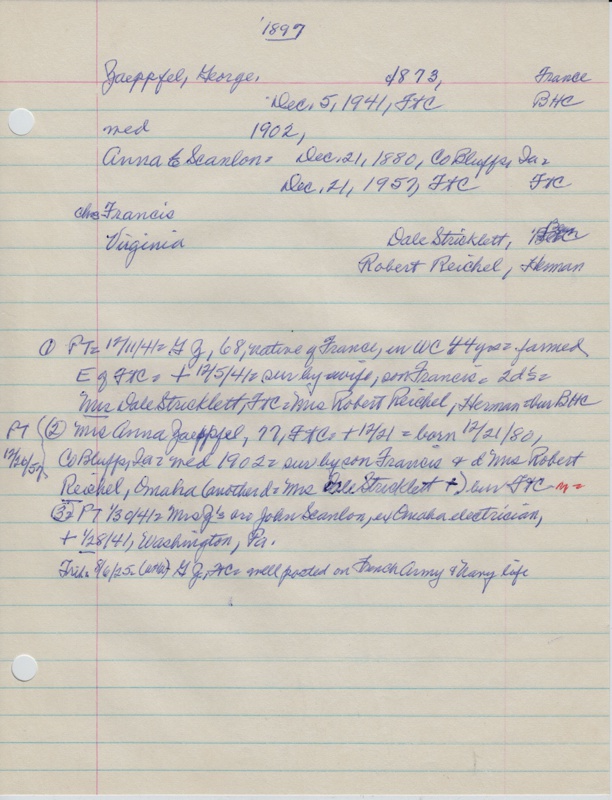 '1897
Zaeppfel, George, 1873, France
Dec. 5, 1941, FtC BHC
med 1902,
Anna E Scanlon = Dec. 21, 1880, Co Bluffs, Ia =
Dec. 21, 1957, FtC FtC
chs Francis
Virginia Dale Stricklett,
Robert Reichel, Herman
① PT= 12/11/41= G Z, 68, native of France, in WC 44 yrs = farmed
E of FtC = + 12/5/41 = sur by wife, son Francis = 2 d's =
Mrs Dale Stricklett, FtC = Mrs Robert Reichel, Herman = bur BHC
PT ② Mrs Anna Zaeppfel, 77, FtC = + 12/21 = born 12/21/80,
12/26/57 Co Bluffs, Ia = med 1902 = sur by son Francis & d Mrs Robert
Reichel, Omaha (another d = Mrs Dale Stricklett +) bur FtC
③ = PT 1/30/41 = Mrs Z's bro John Scanlon, ex Omaha electrician,
+ 1/28/41, Washington, Pa.
Trib = 8/6/25 = G Z, FtC = well posted on French Army & Navy life